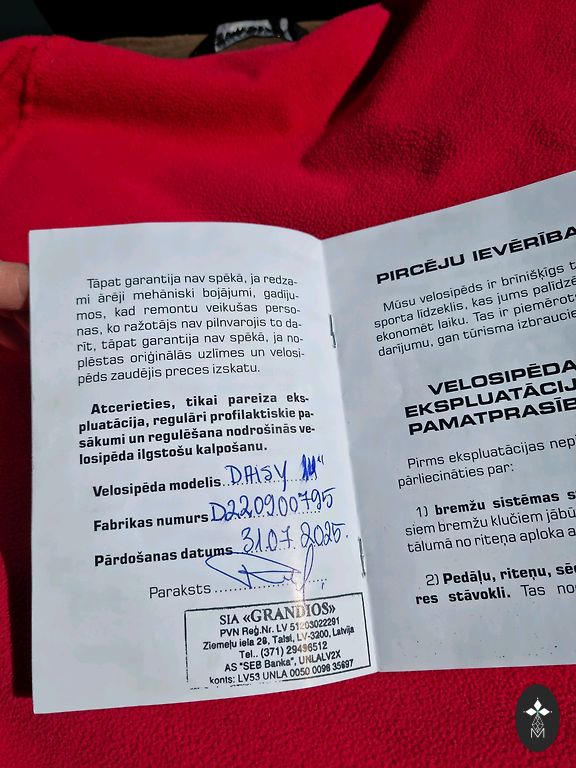 Tāpat garantija nav spēkā, ja redza-
mi ārēji mehāniski bojājumi, gadīju-
mos, kad remontu veikušas perso-
nas, ko ražotājs nav pilnvarojis to da-
rīt, tāpat garantija nav spēkā, ja no-
plēstas oriģinālās uzlīmes un velosi-
pēds zaudējis preces izskatu.
Atcerieties, tikai pareiza eks-
pluatācija, regulāri profilaktiskie pa-
sākumi un regulēšana nodrošinās ve-
losipēda ilgstošu kalpošanu.
Velosipēda modelis DAISY
Fabrikas numurs D220900795
Pārdošanas datums 31.07.2025.
Paraksts
SIA «GRANDIOS»
PVN Reģ.Nr. LV 51203022291
Ziemeļu iela 28, Talsi, LV-3200, Latvija
Tel.. (371) 29496512
AS "SEB Banka", UNLALV2X
konts: LV53 UNLA 0050 0098 35697
PIRCĒJU IEVĒRĪBA
Mūsu velosipēds ir brīnišķīgs t
sporta līdzeklis, kas jums palīdzē
ekonomēt laiku. Tas ir piemērots
darījumu, gan tūrisma izbraucie
VELOSIPĒDA
EKSPLUATĀCIJ
PAMATPRASĪB
Pirms ekspluatācijas nepi
pārliecināties par:
1) bremžu sistēmas s
siem bremžu klučiem jābū
tālumā no riteņa aploka a
2) Pedāļu, riteņu, sēd
res stāvokli. Tas no
M